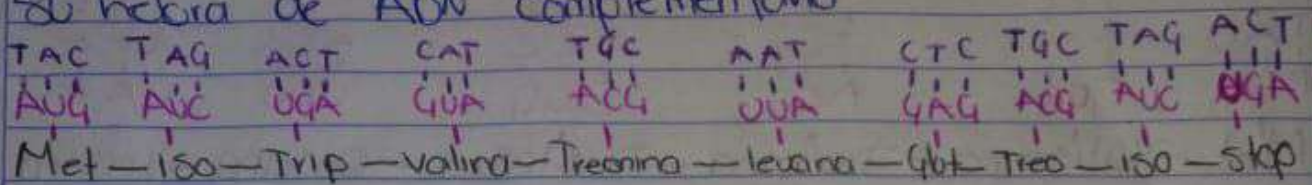 su hebra de ADN complementario
TAC TAG ACT CAT TGC AAT CTC TGC TAG ACT
AUG AUC UGA GUA ACG UUA GAG ACG AUC UGA
Met - Iso - Trip - valina - Treonina - leucina - Glut - Treo - Iso - Stop